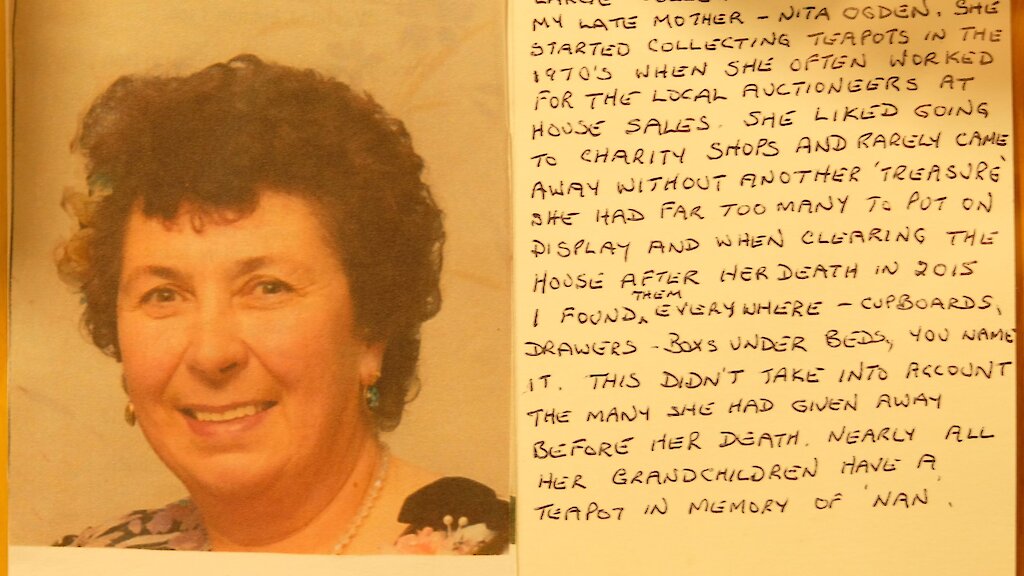 MY LATE MOTHER - NITA OGDEN. SHE
STARTED COLLECTING TEAPOTS IN THE
1970'S WHEN SHE OFTEN WORKED
FOR THE LOCAL AUCTIONEERS AT
HOUSE SALES. SHE LIKED GOING
TO CHARITY SHOPS AND RARELY CAME
AWAY WITHOUT ANOTHER 'TREASURE'
SHE HAD FAR TOO MANY TO PUT ON
DISPLAY AND WHEN CLEARING THE
HOUSE AFTER HER DEATH IN 2015
I FOUND THEM EVERYWHERE - CUPBOARDS,
DRAWERS - BOXS UNDER BEDS, YOU NAME
IT. THIS DIDN'T TAKE INTO ACCOUNT
THE MANY SHE HAD GIVEN AWAY
BEFORE HER DEATH. NEARLY ALL
HER GRANDCHILDREN HAVE A
TEAPOT IN MEMORY OF 'NAN'.